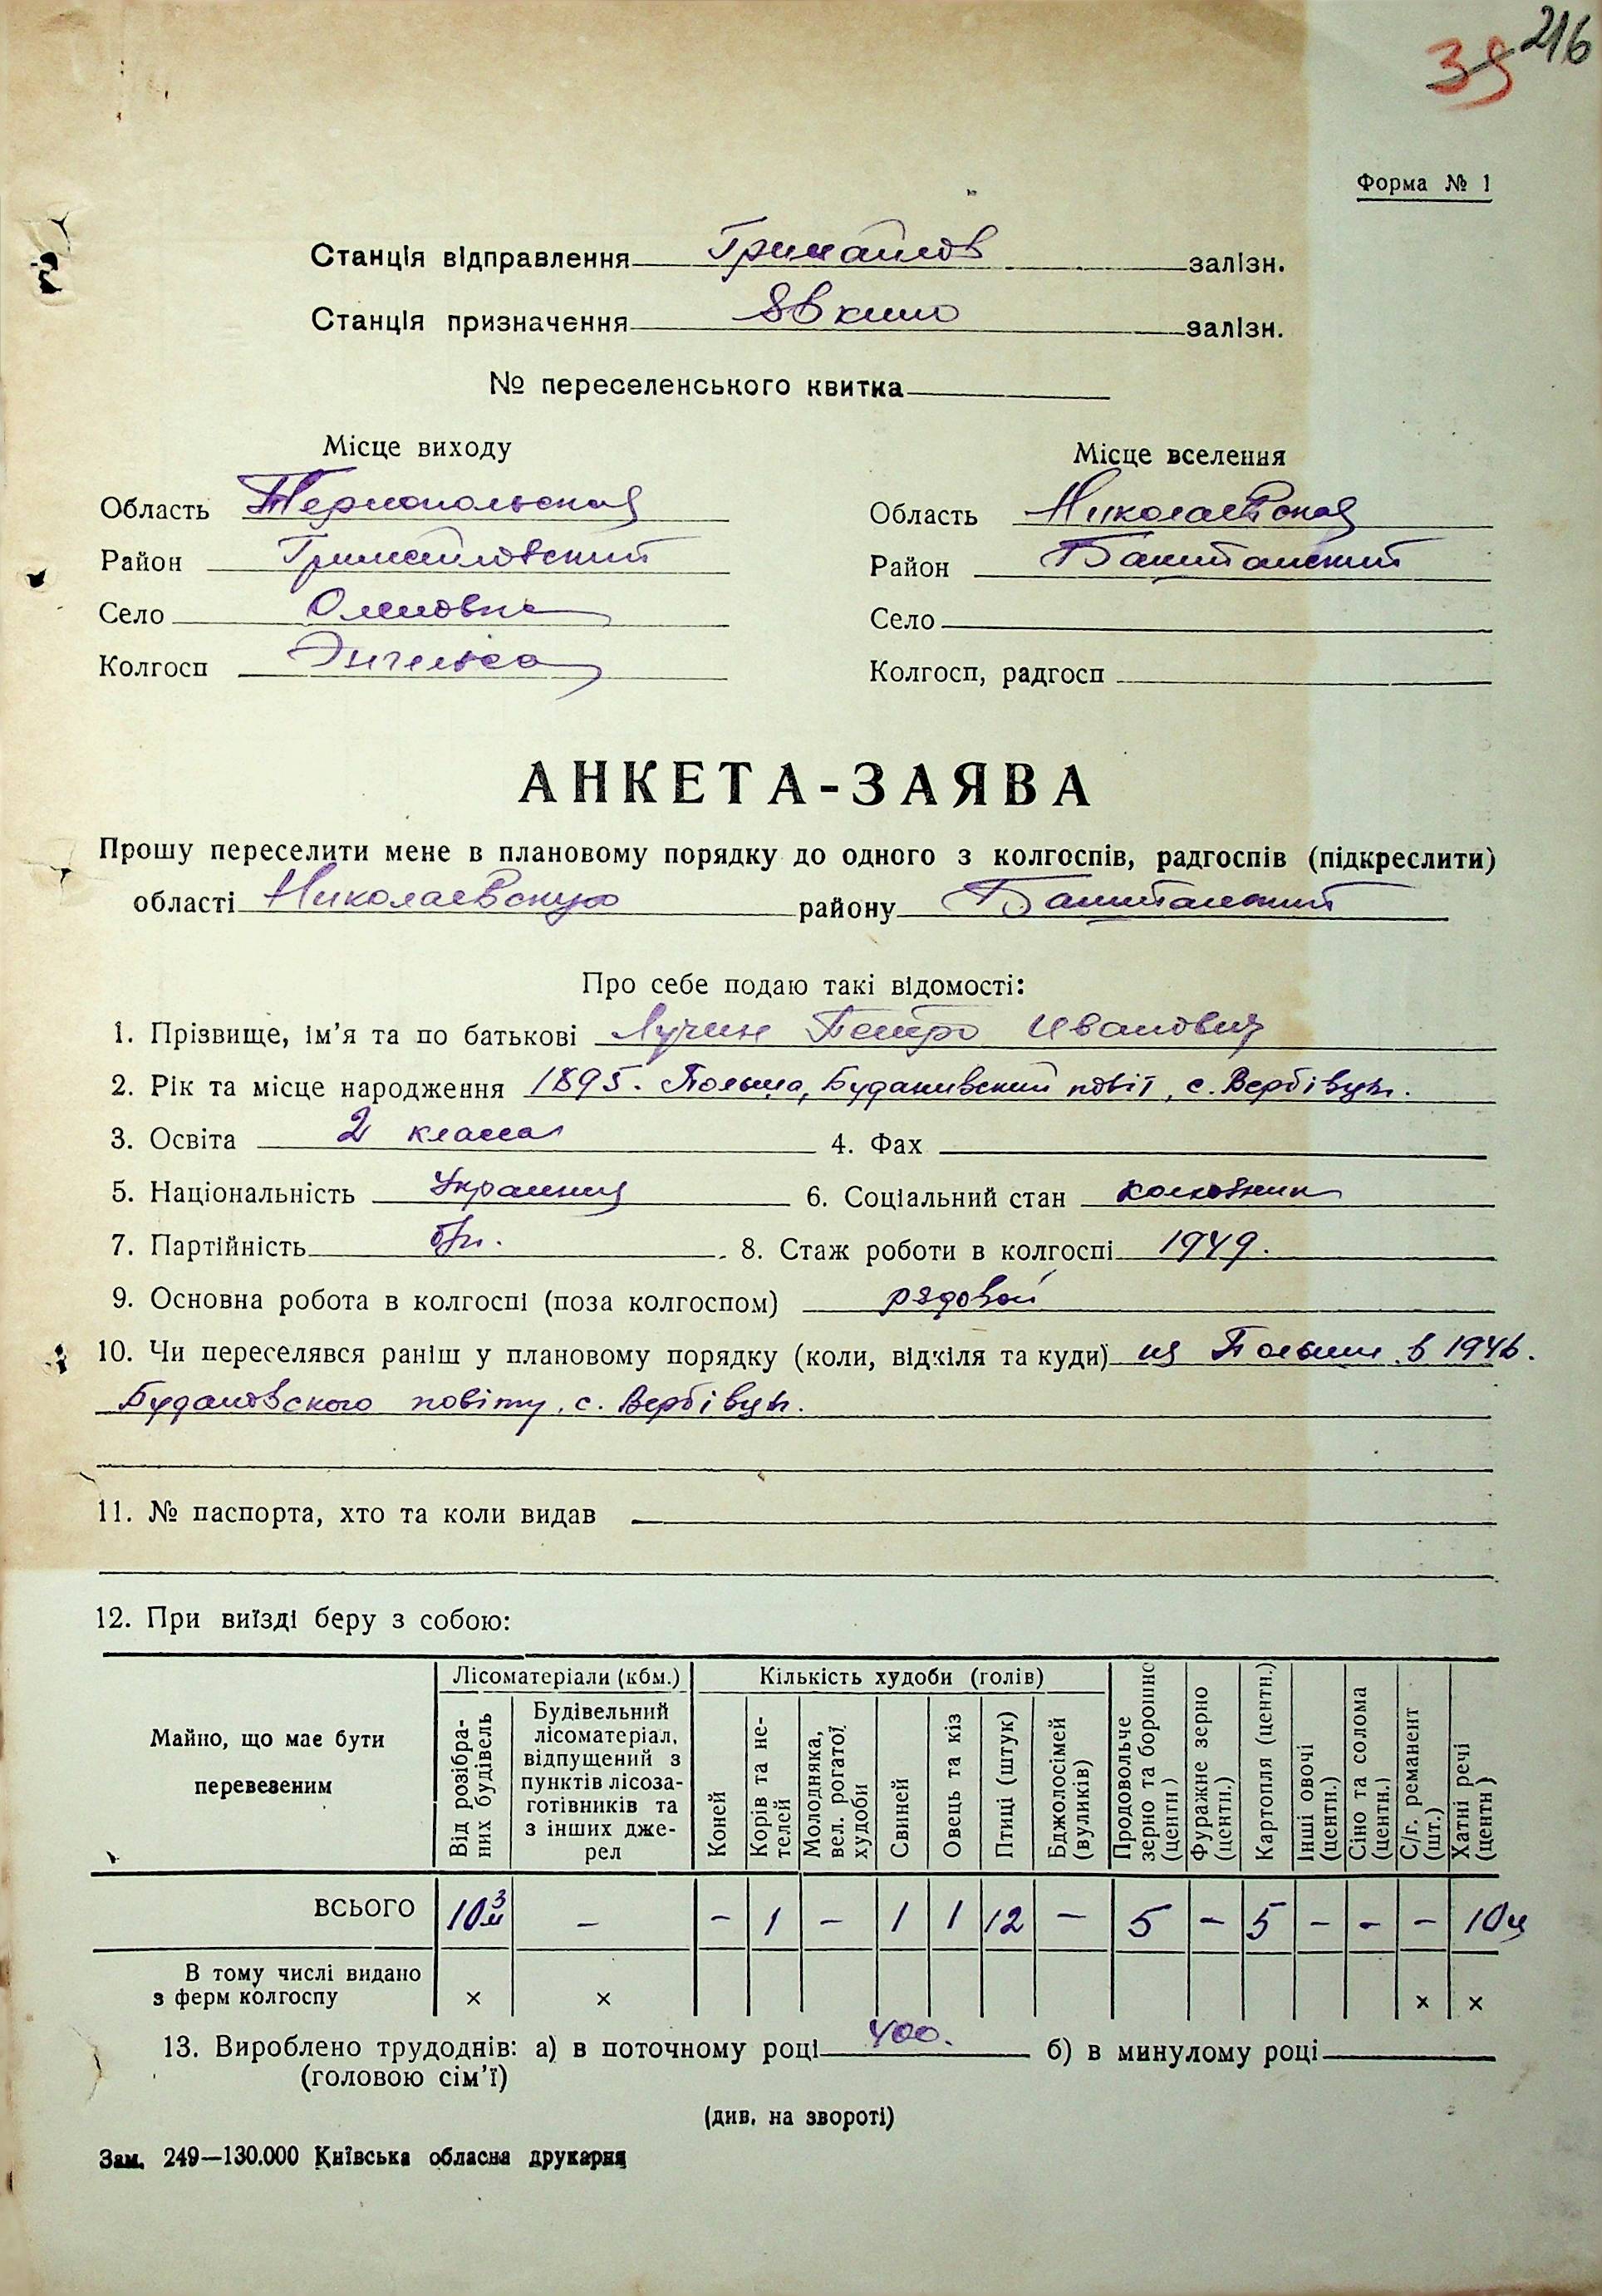 39 216
Форма № 1
Станція відправлення Гримайлов залізн.
Станція призначення Явкино залізн.
№ переселенського квитка
Місце виходу Місце вселення
Область Тернопольская Область Николаевская
Район Гримайловский Район Баштанский
Село Оленовка Село
Колгосп Энгельса Колгосп, радгосп
АНКЕТА-ЗАЯВА
Прошу переселити мене в плановому порядку до одного з колгоспів, радгоспів (підкреслити)
області Николаевскую району Баштанский
Про себе подаю такі відомості:
1. Прізвище, ім'я та по батькові Лучин Петро Иванович
2. Рік та місце народження 1895. Польша, повіт, с. Вербівці.
3. Освіта 2 класса 4. Фах
5. Національність Украинец 6. Соціальний стан колхозник
7. Партійність б/п. 8. Стаж роботи в колгоспі 1949.
9. Основна робота в колгоспі (поза колгоспом) рядовой
10. Чи переселявся раніш у плановому порядку (коли, відкіля та куди) из Польши в 1946.
Будановского повіту, с. Вербівці.
11. № паспорта, хто та коли видав
12. При виїзді беру з собою:
Майно, що має бути перевезеним
Лісоматеріали (кбм.) Кількість худоби (голів)
Від розібраних будівель
Будівельний лісоматеріал, відпущений з пунктів лісозаготівників та з інших джерел
Коней
Корів та нетелей
Молодняка, вел. рогатої худоби
Свиней
Овець та кіз
Птиці (штук)
Бджолосімей (вуликів)
Продовольче зерно та борошно (центн)
Фуражне зерно (центн.)
Картопля (центн.)
Інші овочі (центн.)
Сіно та солома (центн.)
С/г. реманент (шт.)
Хатні речі (центн)
ВСЬОГО 10 м3 – – 1 – 1 1 12 – 5 – 5 – – – 10ц
В тому числі видано
з ферм колгоспу × × × ×
13. Вироблено трудоднів: а) в поточному році 400. б) в минулому році
(головою сім'ї)
(див. на звороті)
Зам. 249—130.000 Київська обласна друкарня